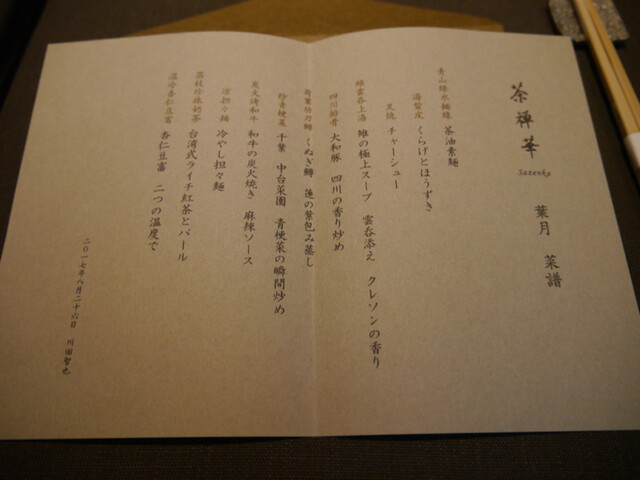 茶禅華
Sazenka
葉月 菜譜
青山緑水麺線 茶油素麺
海蜇皮 くらげとほうずき
叉焼 チャーシュー
緑雲呑上湯 雉の極上スープ 雲呑添え クレソンの香り
四川排骨 大和豚 四川の香り炒め
荷葉功刀鱒 くぬぎ鱒 蓮の葉包み蒸し
炒青梗菜 千葉 中台菜園 青梗菜の瞬間炒め
炭火烤和牛 和牛の炭火焼き 麻辣ソース
涼担々麺 冷やし担々麺
荔枝珍珠奶茶 台湾式ライチ紅茶とパール
温冷杏仁豆富 杏仁豆富 二つの温度で
二〇一七年八月二十六日 川田智也